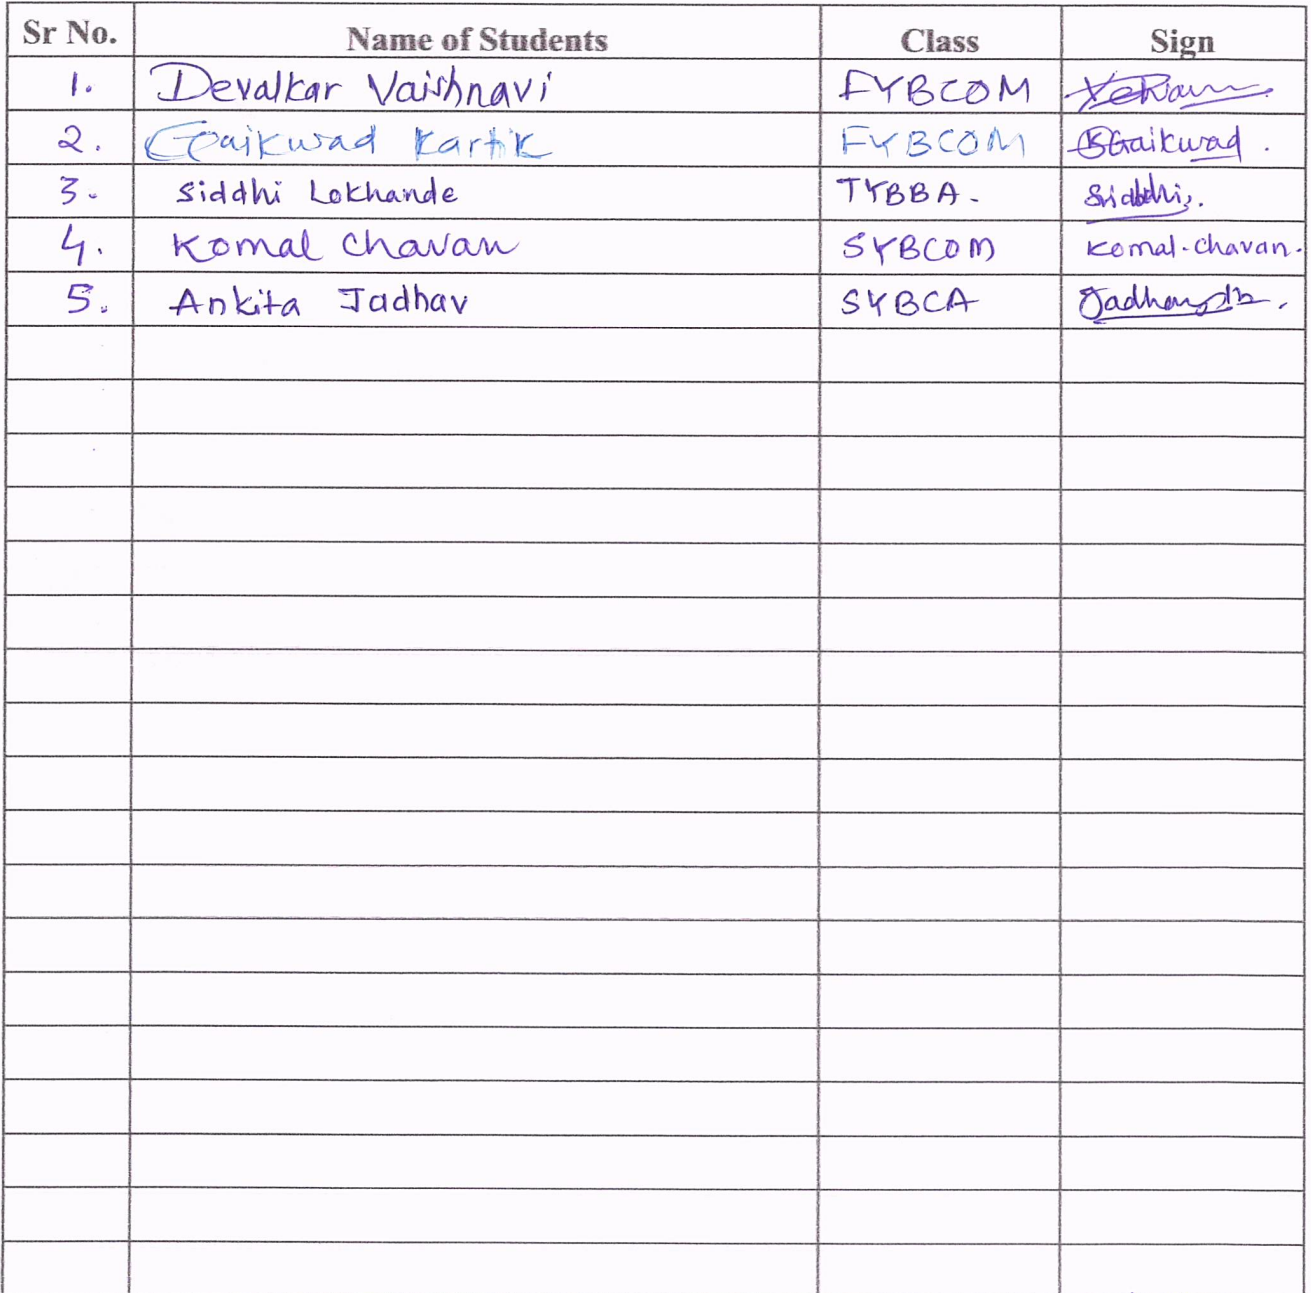 Sr No. Name of Students Class Sign
1. Devalkar Vaishnavi FYBCOM
2. Gaikwad Kartik FYBCOM KGaikwad.
3. Siddhi Lokhande TYBBA. Siddhi
4. Komal Chavan SYBCOM Komal.chavan.
5. Ankita Jadhav SYBCA